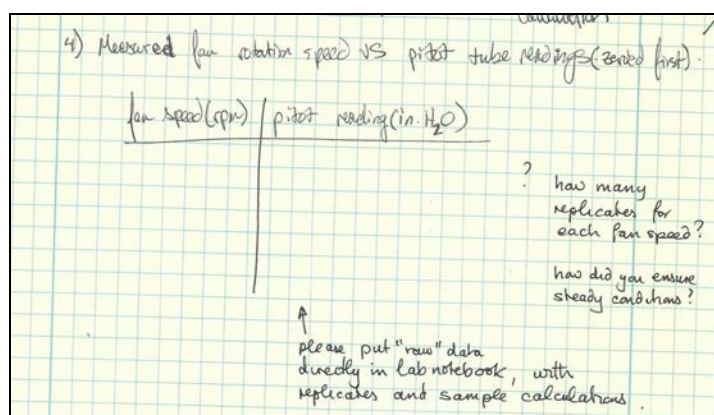 4) Measured fan rotation speed VS pitot tube readings (zeroed first).
fan speed (rpm) pitot reading (in. H₂O)
?
how many
replicates for
each fan speed?
how did you ensure
steady conditions?
please put "raw" data
directly in lab notebook, with
replicates and sample calculations.